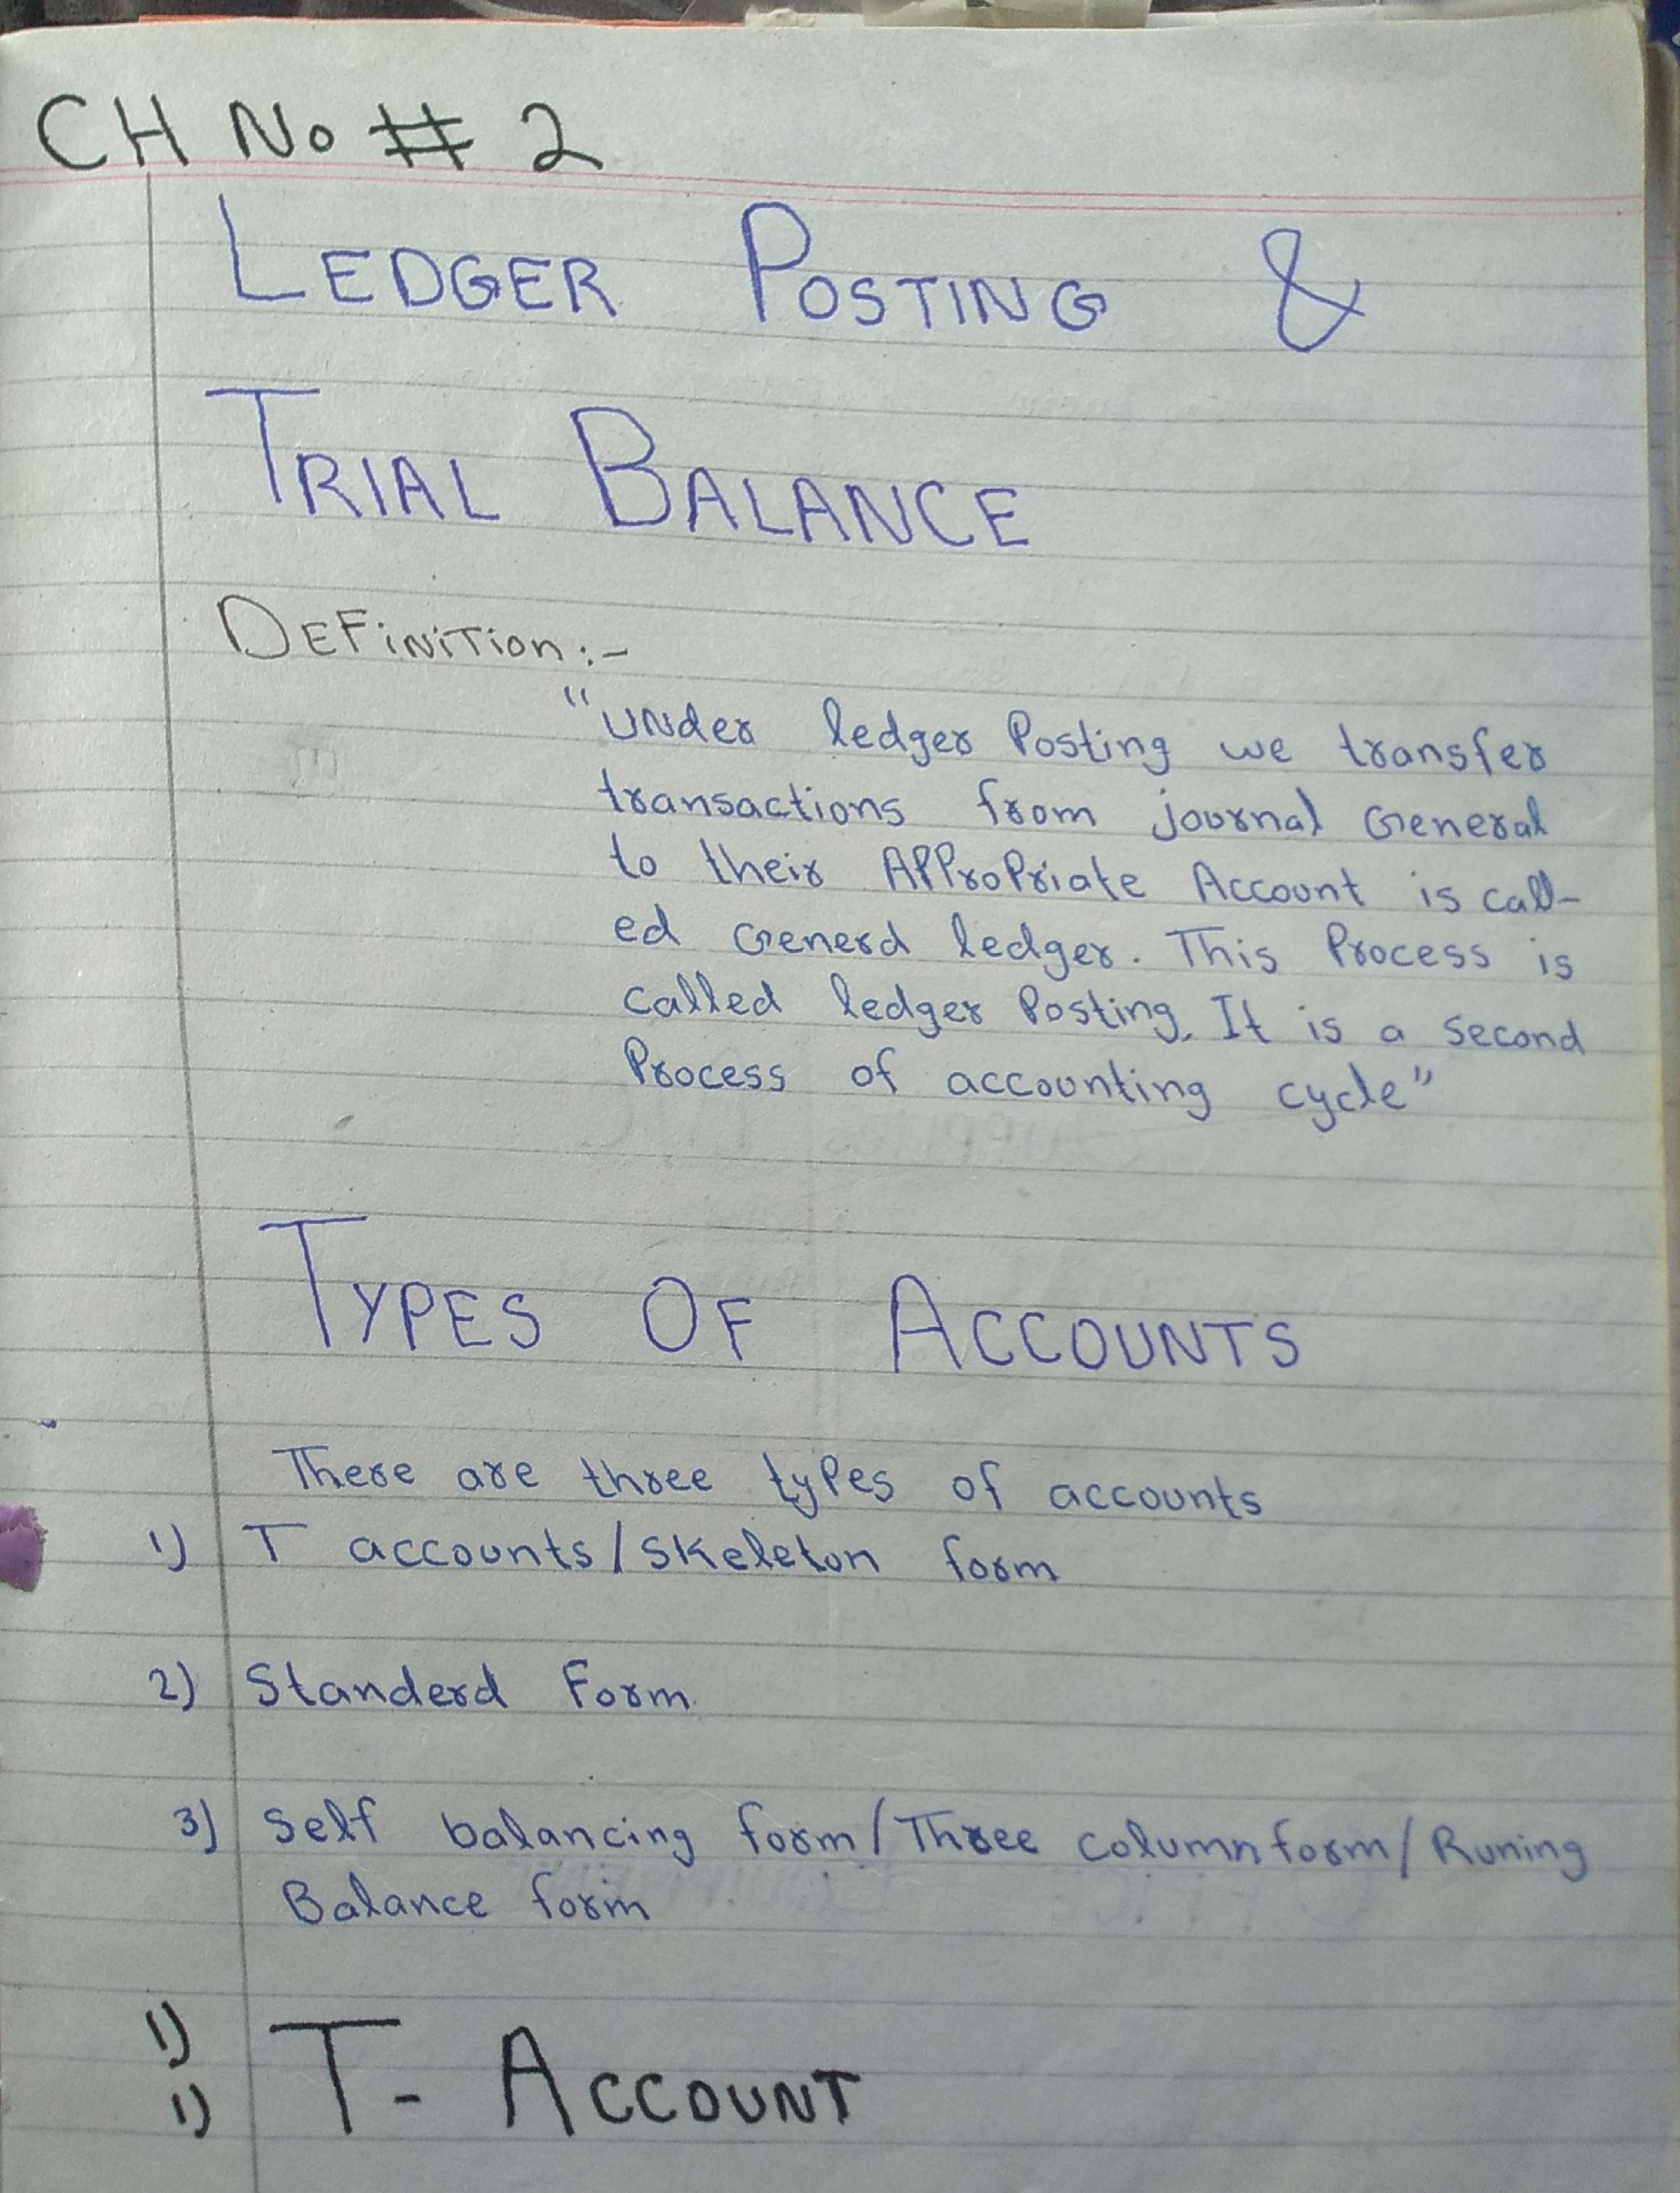 CH No # 2
LEDGER POSTING &
TRIAL BALANCE
DEFiNiTion :-
"UNder ledger Posting we transfer
transactions from journal General
to their APProPriate Account is call-
ed Generd ledger. This Process is
called ledger Posting. It is a second
Process of accounting cycle"
TYPES OF ACCOUNTS
There are three tyPes of accounts
1) T accounts/Skeleton form
2) Standerd Form.
3) Self balancing form/Three column form/Runing
Balance form
1)
1) T- ACCOUNT